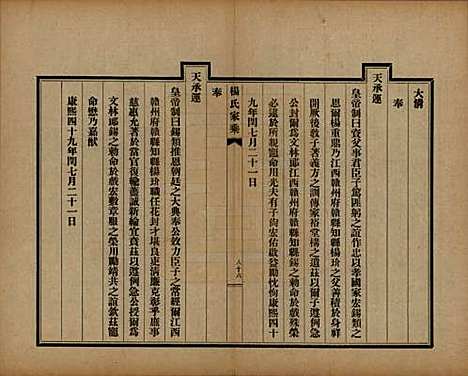 大清
奉
天承運
皇帝制曰資父事君臣子篤匪躬之誼作忠以孝國家宏錫類之
恩爾楊重熙乃江西贛州府贛縣知縣楊玠之父善積於身祥
開厥後敎子著義方之訓傳家裕堂構之遺茲以爾子遵例急
公封爾爲文林郎江西贛州府贛縣知縣錫之勅命於戲殊榮
必逮於所親寵命用光夫有子尙宏佑啟益勵忱恂康熙四十
九年閏七月二十一日
楊氏家乘
八十八
奉
天承運
皇帝制曰錫類推恩朝廷之大典奉公效力臣子之常經爾江西
贛州府贛縣知縣楊玠職任花封才堪良吏淸廉克彰乎庶事
慈惠允著於當官復懷善誠新綸宜賁茲以遵例急公授爾爲
文林郎錫之勅命於戲宏敷章服之榮用勵靖共之誼欽茲寵
命懋乃嘉猷
康熙四十九年閏七月二十一日